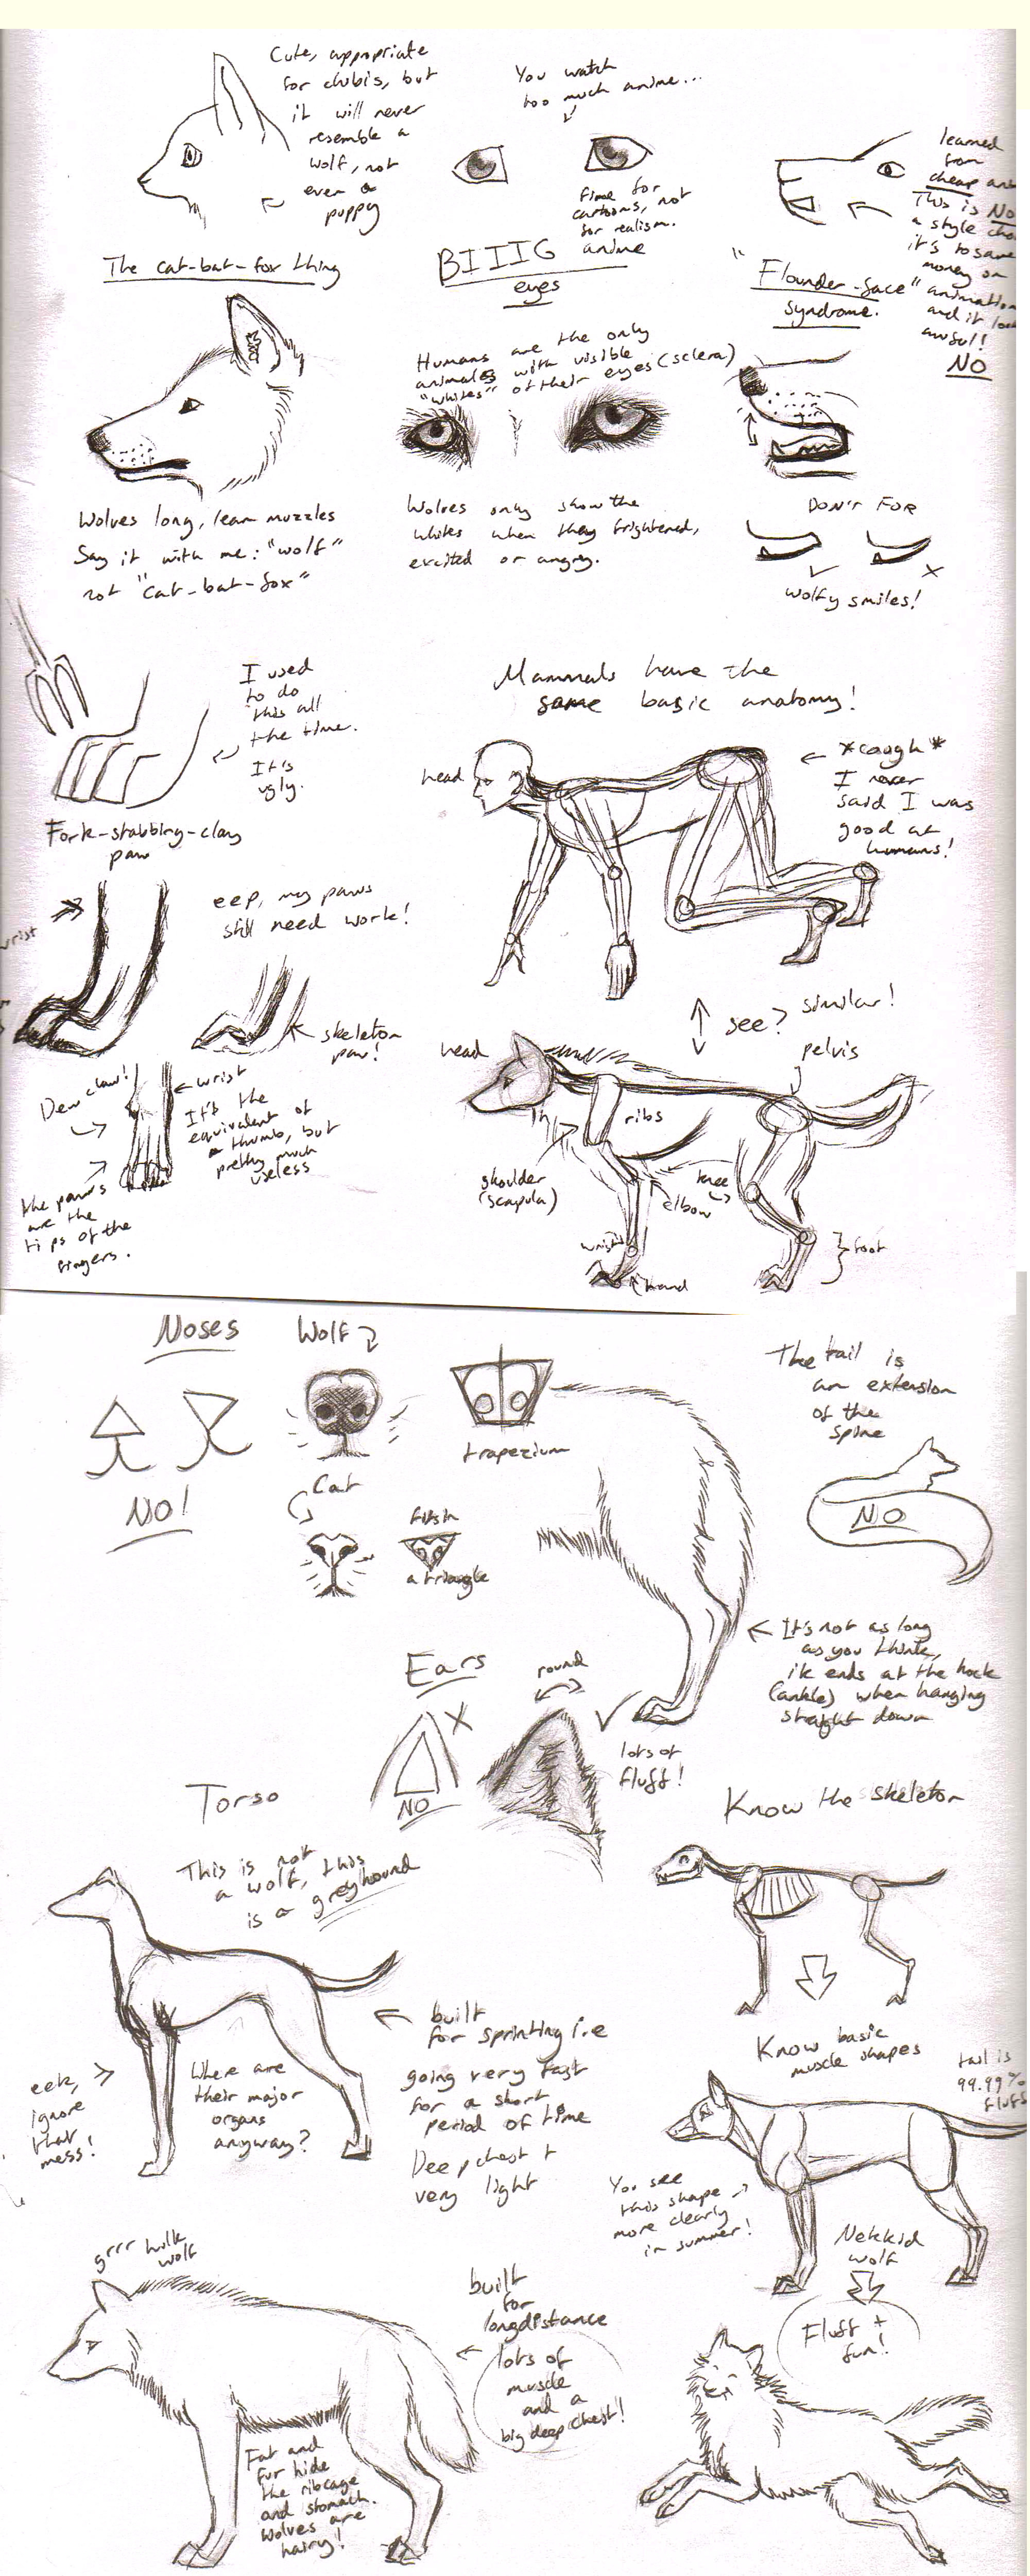 Cute, appropriate
for chibis, but
it will never
resemble a
wolf, not
even a
puppy
The cat-bat-fox thing
You watch
too much anime...
Fine for
cartoons, not
for realism.
BIIIG anime
eyes
learned
from
cheap
This is NO
a style
it's to save
money on
animation
and it
awful!
NO
"Flounder-face"
syndrome.
Humans are the only
animals with visible
"whites" of their eyes (sclera)
Wolves long, lean muzzles
Say it with me: "wolf"
not "cat-bat-fox"
Wolves only show the
whites when they frightened,
excited or angry.
DON'T FOR
wolfy smiles!
I used
to do
this all
the time.
It's
ugly.
Fork-stabbing-clay
paw
wrist
eep, my paws
still need work!
skeleton
paw!
Dew claw!
wrist
It's the
equivalent of
a thumb, but
pretty much
useless
the paws
are the
tips of the
fingers.
Mammals have the
same basic anatomy!
head
*cough*
I never
said I was
good at
humans!
see? similar!
head
pelvis
ribs
shoulder
(scapula)
knee
elbow
wrist
hand
foot
Noses
NO!
Wolf
trapezium
Cat
fits in
a triangle
The tail is
an extension
of the
spine
NO
It's not as long
as you think,
it ends at the hock
(ankle) when hanging
straight down
Ears
round
NO
lots of
fluff!
Torso
This is not
a wolf, this
is a greyhound
Where are
their major
organs
anyway?
eek,
ignore
that
mess!
built
for sprinting i.e
going very fast
for a short
period of time
Deep chest +
very light
Know the skeleton
Know basic
muscle shapes
tail is
99.99%
fluff
You see
this shape
more clearly
in summer!
Nekkid
wolf
Fluff +
fun!
grrr hulk
wolf
built
for
longdistance
lots of
muscle
and a
big deep chest!!
Fat and
fur hide
the ribcage
and stomach.
Wolves are
hairy!